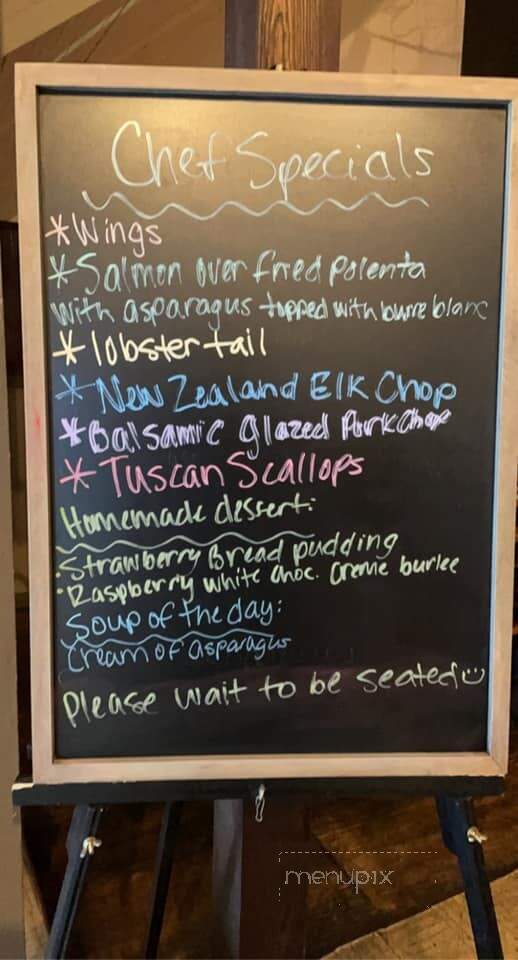 Chef Specials
*Wings
*Salmon over fried polenta
with asparagus topped with burre blanc
*lobster tail
*New Zealand Elk Chop
*Balsamic glazed Pork Chop
*Tuscan Scallops
Homemade dessert:
•Strawberry Bread pudding
•Raspberry white choc. creme burlee
Soup of the day:
Cream of asparagus
Please wait to be seated☺
menupix